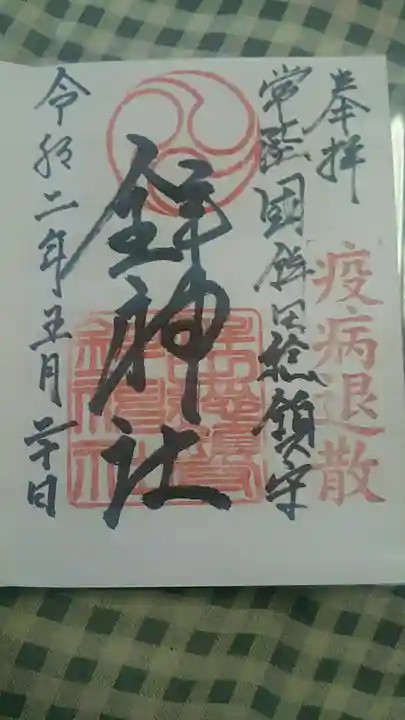 奉拝
疫病退散
常陸國鉾田総鎮守
鉾神社
令和二年五月二十日